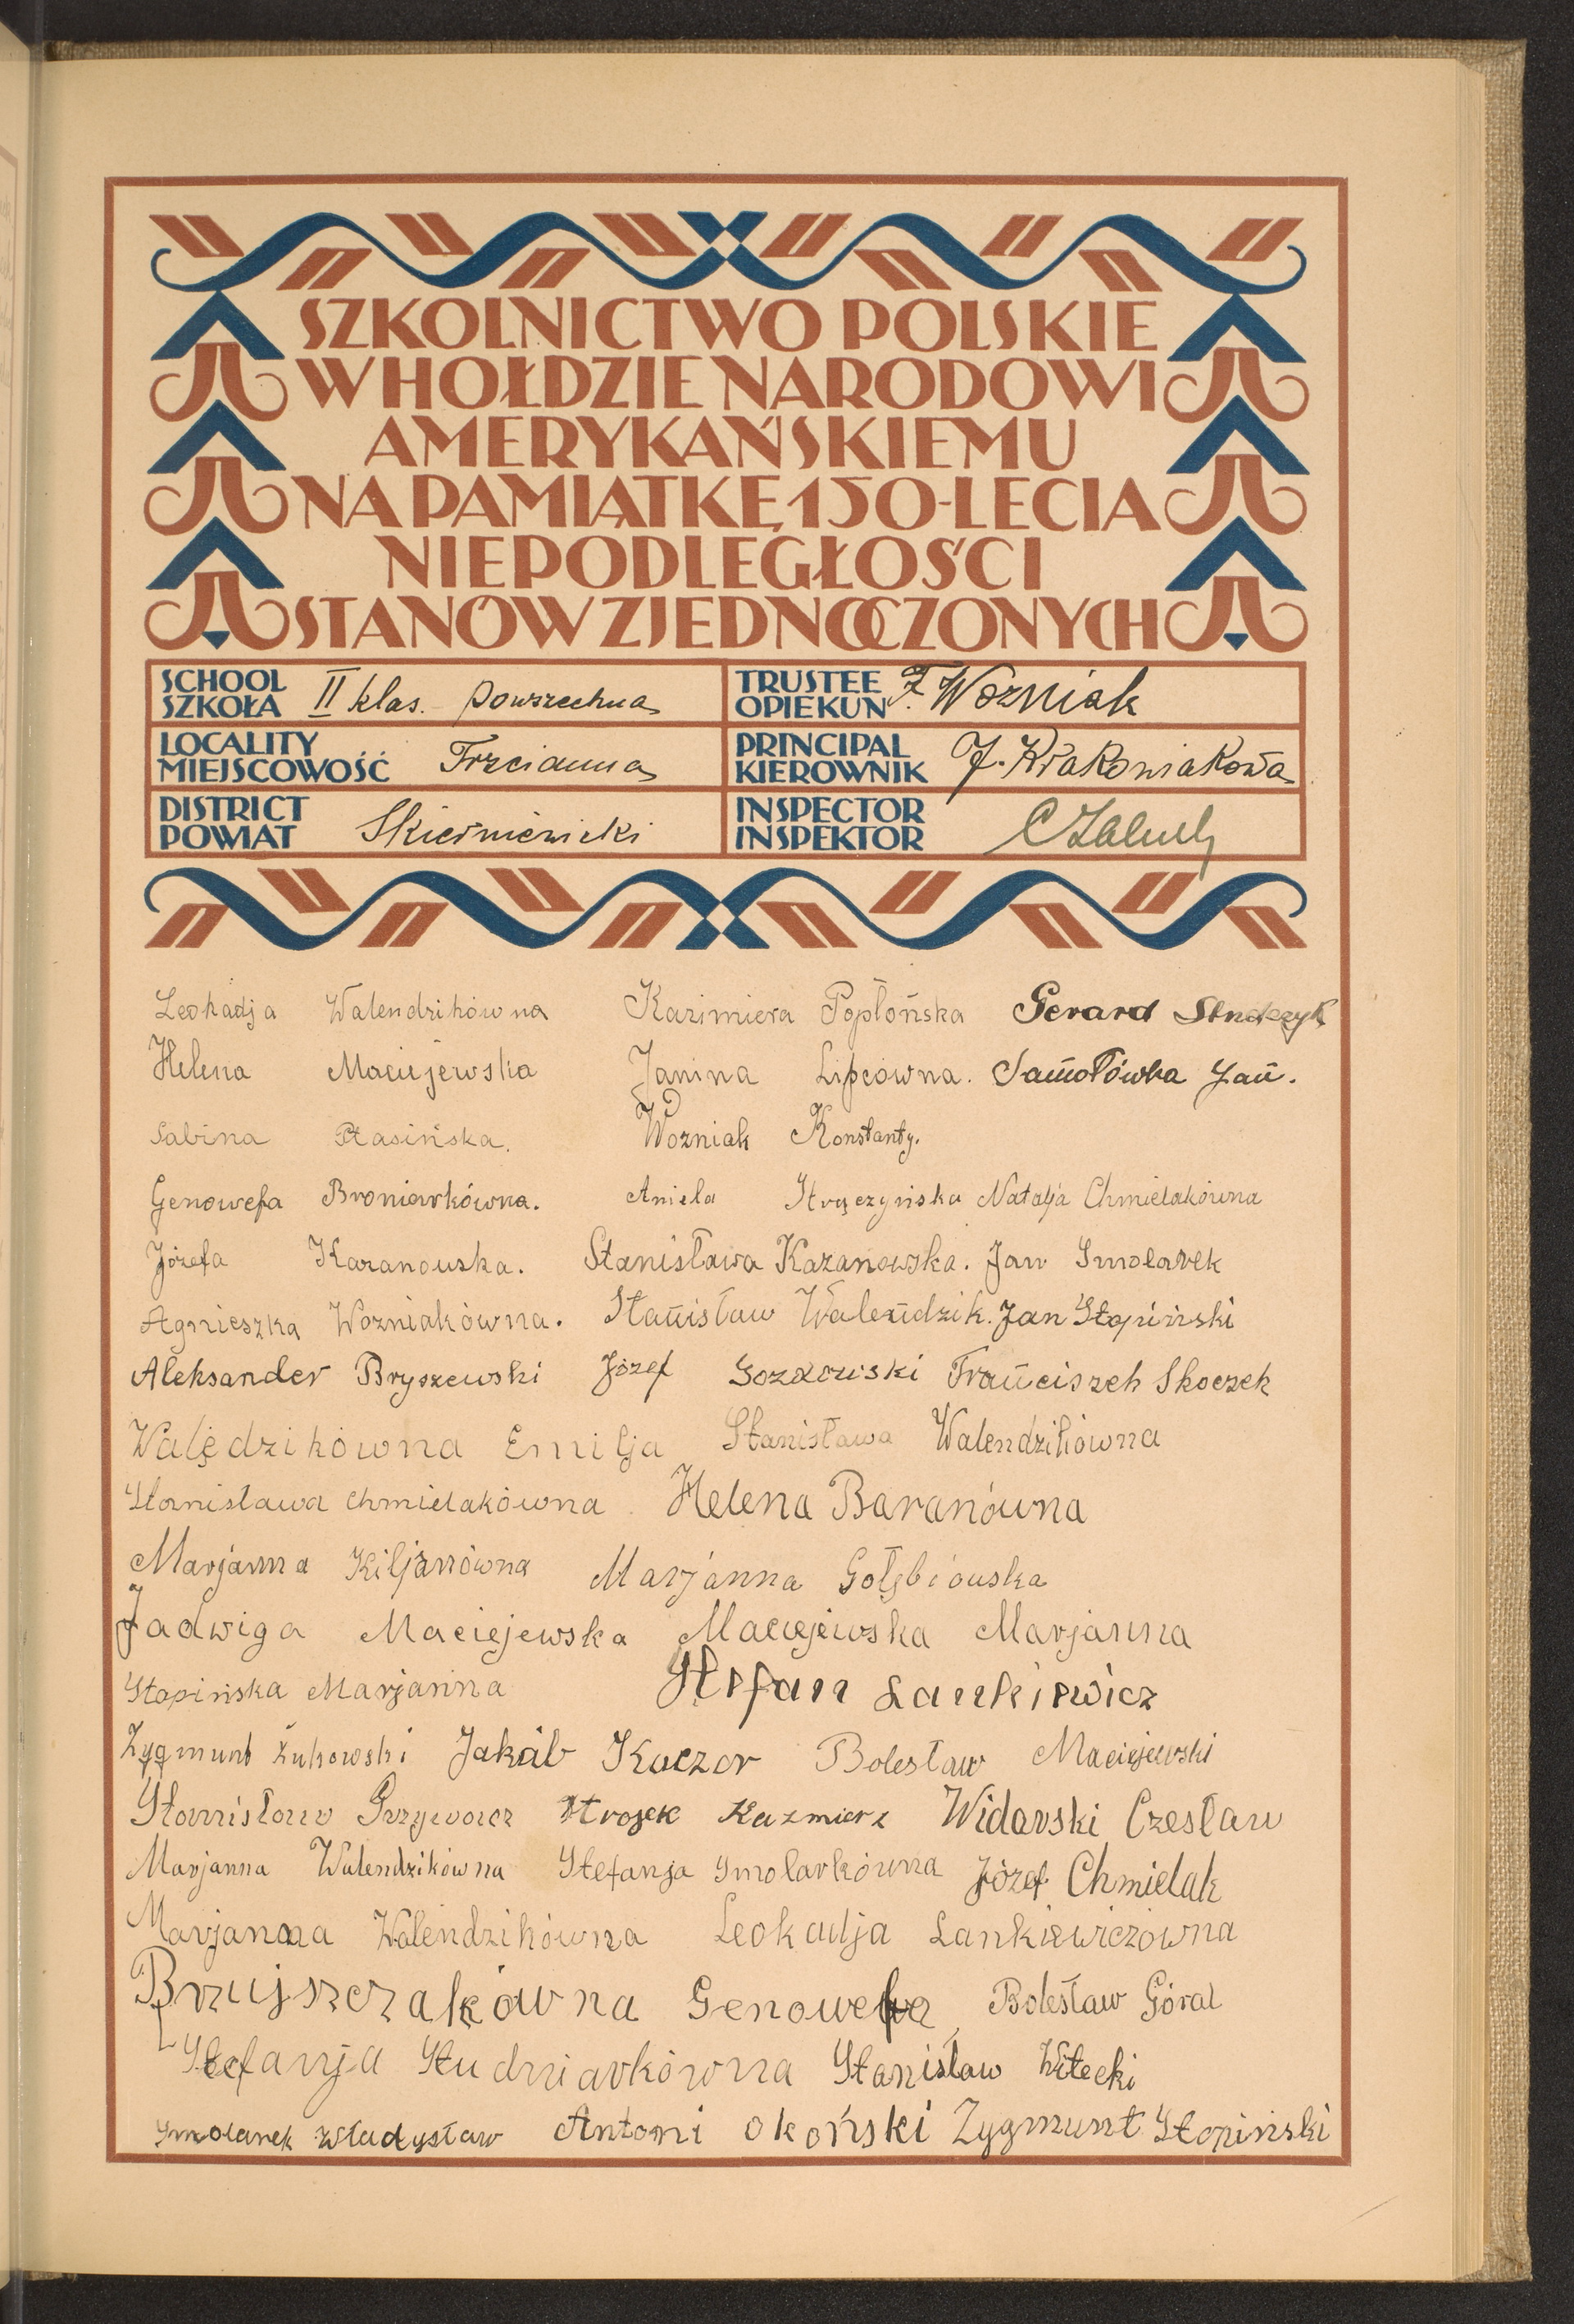 SZKOLNICTWO POLSKIE
W HOŁDZIE NARODOWI
AMERYKAŃSKIEMU
NA PAMIĄTKĘ 150-LECIA
NIEPODLEGŁOŚCI
STANÓW ZJEDNOCZONYCH
SCHOOL SZKOŁA II klas. powszechna
TRUSTEE OPIEKUN F. Wozniak
LOCALITY MIEJSCOWOŚĆ Trzcianna
PRINCIPAL KIEROWNIK J. Krakowiakowa
DISTRICT POWIAT Skierniewicki
INSPECTOR INSPEKTOR
Leokadja Walendzikówna Kazimiera Popłońska Gerard
Helena Maciejewska Janina Lipcówna. Samołówka Jan.
Sabina Ptasińska. Wozniak Konstanty.
Genowefa Broniarkówna. Aniela Strączyńska Natalja Chmielakówna
Józefa Kazanowska. Stanisława Kazanowska. Jan Smolarek
Agnieszka Wozniakówna. Stanisław Walendzik. Jan Stopiński
Aleksander Bryszewski Józef Franciszek Skoczek
Walędzikówna Emilja Stanisława Walendzikówna
Stanisława Chmielakówna Helena Baranówna
Marjanna Kiljanówna Marjanna Gołębiouska
Jadwiga Maciejewska Maciejewska Marjanna
Stopińska Marjanna Stefan Lankiewicz
Zygmunt Żukowski Jakób Kaczor Bolesław Maciejewski
Stannisław Przyworcz Strojek Kazmierz Widarski Czesław
Marjanna Walendzikówna Stefanja Smolarkówna Józef Chmielak
Marjanna Walendzikówna Leokadja Lankiewiczówna
Brzujszczakówna Genowefa Bolesław Góral
Stefanja Studniarkówna Stanisław Witecki
Smolarek Władysław Antoni Okoński Zygmunt Stopiński